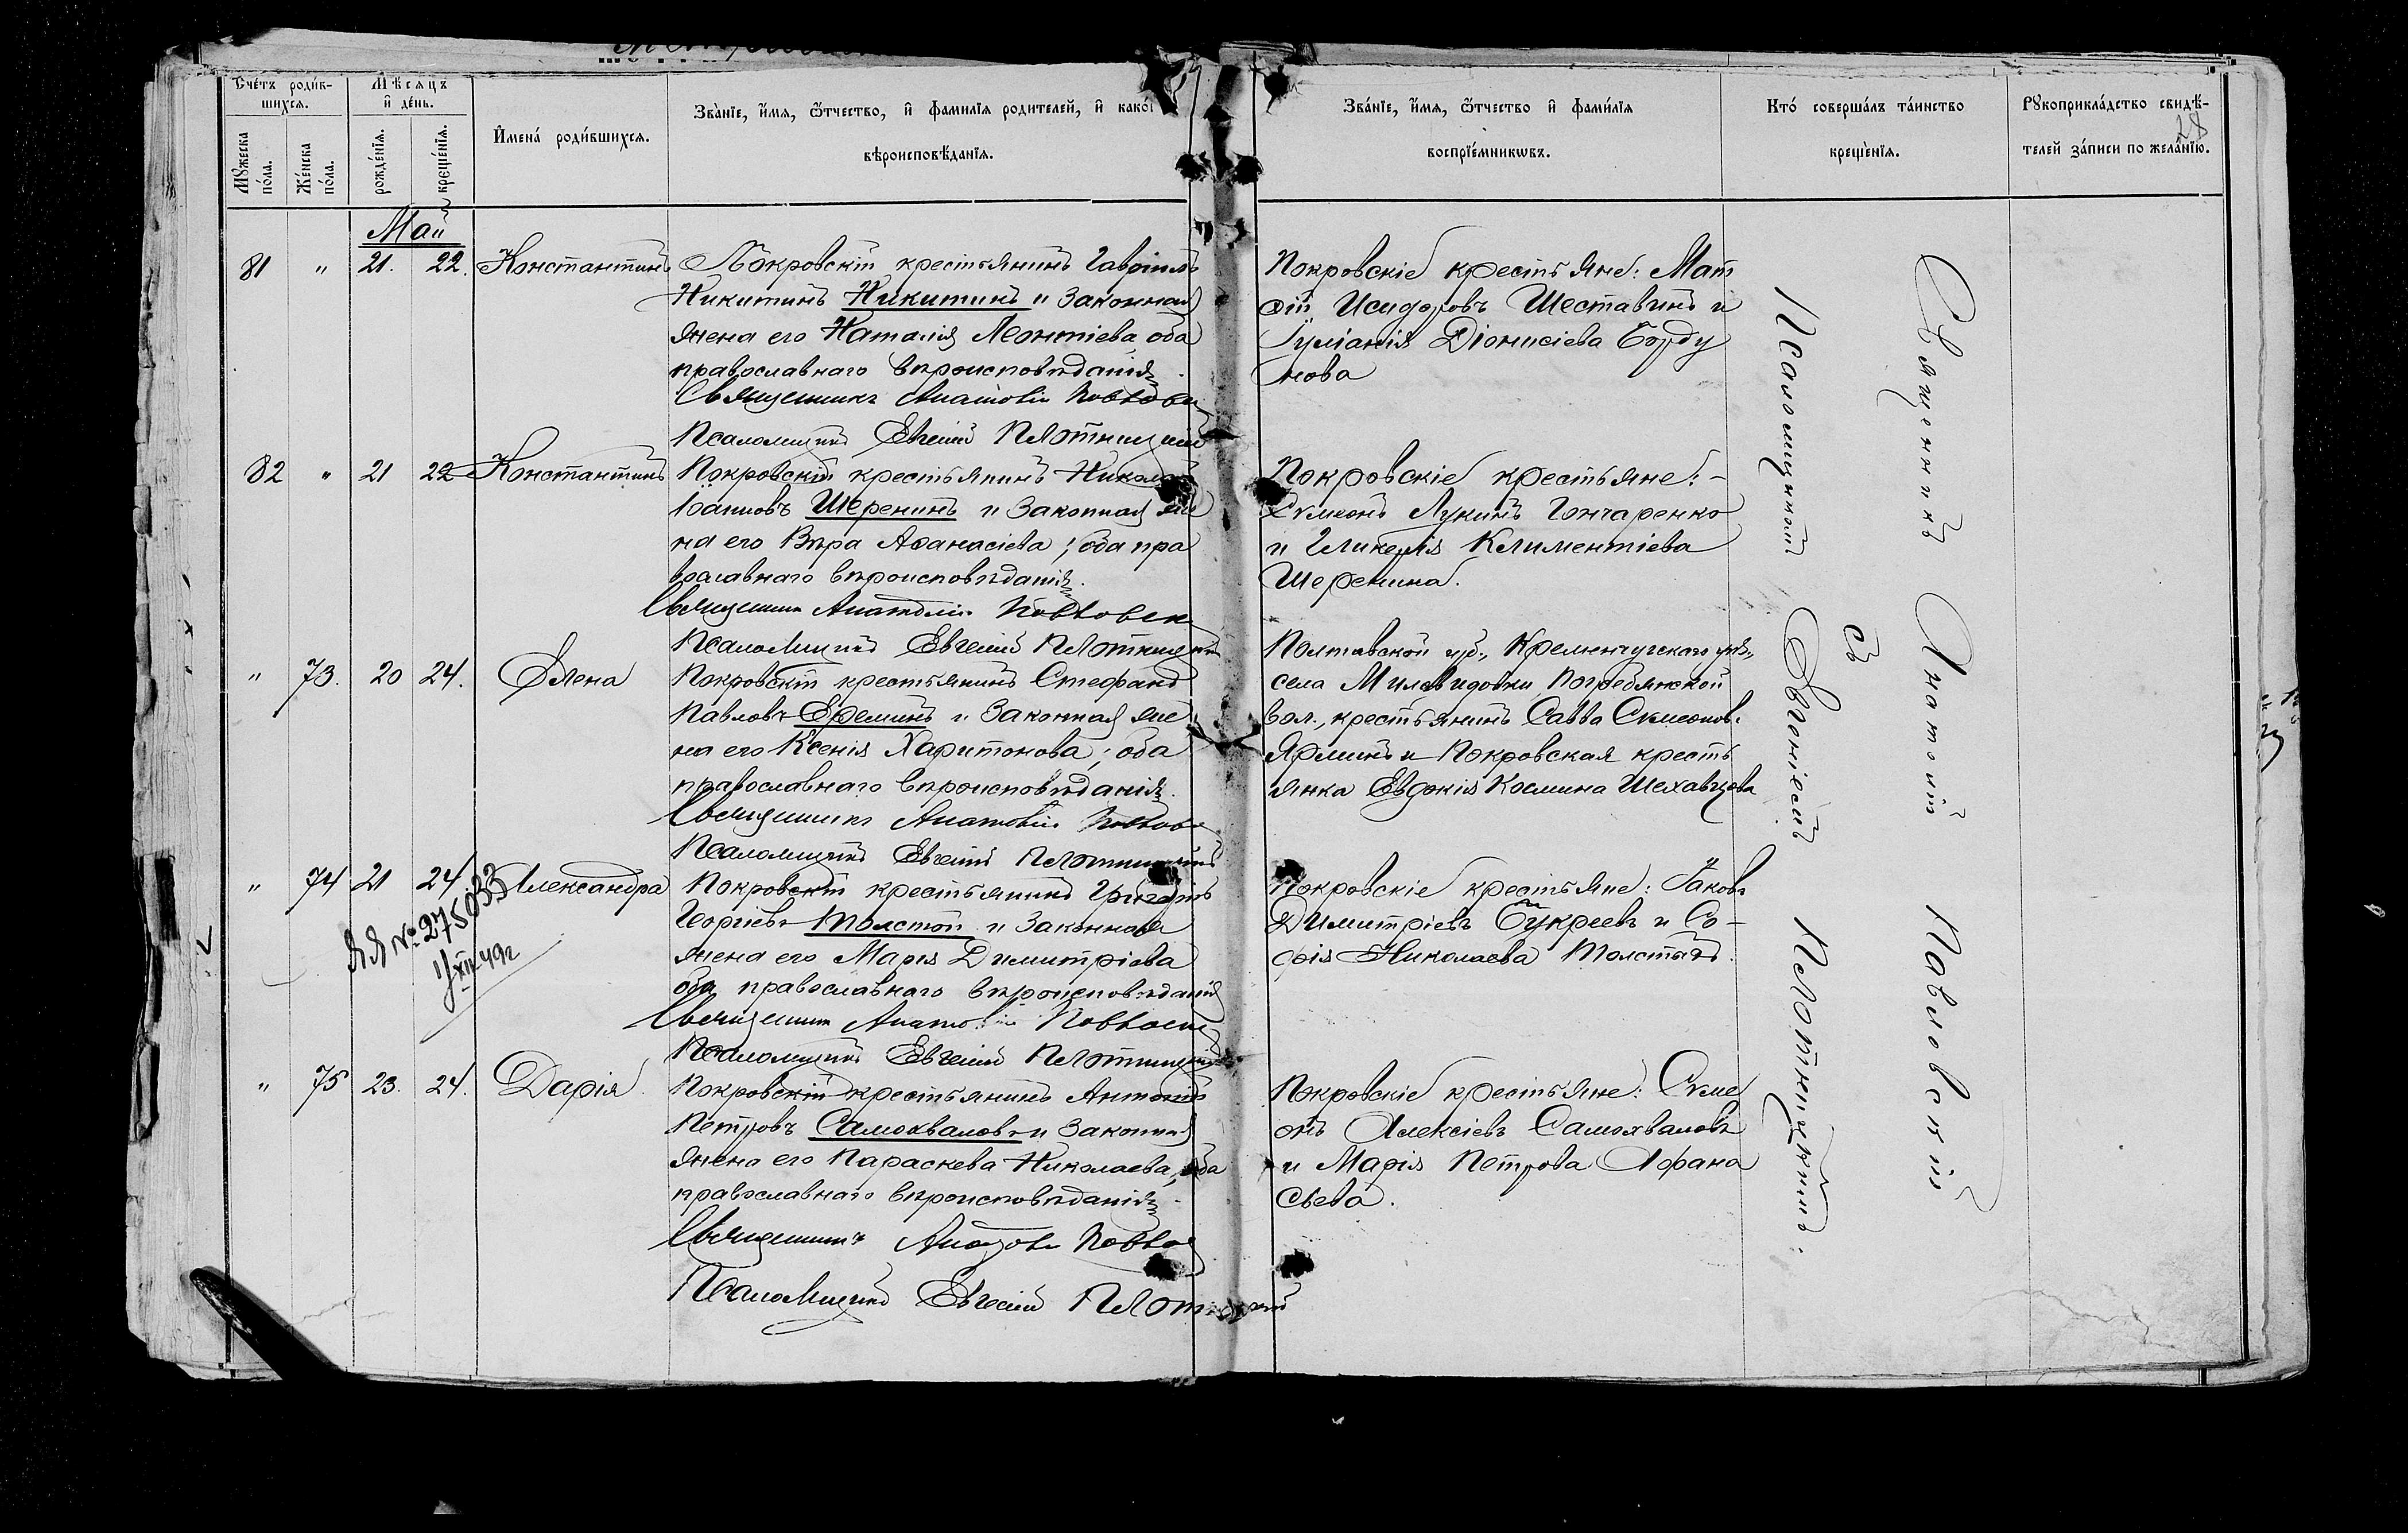 Счетъ родив-
шихся.
Мѣсяцъ
и день.
Мужеска
пола.
Женска
пола.
рожденія.
крещенія.
Имена родившихся.
Званіе, имя, отчество, и фамилія родителей, и како
вѣроисповѣданія.
Званіе, имя, отчество и фамилія
воспріемниковъ.
Кто совершалъ таинство
крещенія.
Рукоприкладство свидѣ-
телей записи по желанію.
28
Май
81 " 21. 22. Константинъ
Покровскій крестьянинъ Гавріилъ
Никитинъ Никитинъ и законная
жена его Наталія Леонтіева оба
православнаго вѣроисповѣданія.
Священникъ Анатолій
Псаломщикъ Евгеній Плотницкій
Покровскіе крестьяне: Мат
ѳій Исидоровъ Шеставинъ и
Іуліанія Діонисіева Борду
нова
82 " 21 22 Константинъ
Покровскій крестьянинъ Николай
Іоанновъ Шеренинъ и законная же
на его Вѣра Аѳанасіева; оба пра
вославнаго вѣроисповѣданія.
Священникъ Анатолій
Псаломщикъ Евгеній Плотницкій
Покровскіе крестьяне: -
Сѵмеонъ Лукинъ Гончаренко
и Гликерія Климентіева
Шеренина.
" 73. 20 24. Елена
Покровскій крестьянинъ Стефанъ
Павловъ Ереминъ и законная же
на его Ксенія Харитонова; оба
православнаго вѣроисповѣданія.
Священникъ Анатолій
Псаломщикъ Евгеній Плотницкій
Полтавской губ., Кременчугскаго уѣз.,
села Миловидовки Погребянской
вол., крестьянинъ Савва Сѵмеонов.
Ярминъ и Покровская кресть
янка Евдокія Космина Шехавцова
" 74 21 24 Александра
ЯЯ № 275033
1/XII 49г
Покровскій крестьянинъ Григорій
Георгіевъ Толстой и законная
жена его Марія Димитріева
оба православнаго вѣроисповѣданія
Священникъ Анатолій
Псаломщикъ Евгеній Плотницкій
Покровскіе крестьяне: Іаковъ
Димитріевъ Букреевъ и Со-
фія Николаева Толстая.
" 75 23. 24. Дарія
Покровскій крестьянинъ Антоній
Петровъ Самохваловъ и законная
жена его Параскева Николаева, оба
православнаго вѣроисповѣданія.
Священникъ Анатолій
Псаломщикъ Евгеній Плотницкій
Покровскіе крестьяне: Сѵме
онъ Алексіевъ Самохваловъ
и Марія Петрова Афана
сьева.
Священникъ Анатолій Павловскій
съ
Псаломщикомъ Евгеніемъ Плотницкимъ.